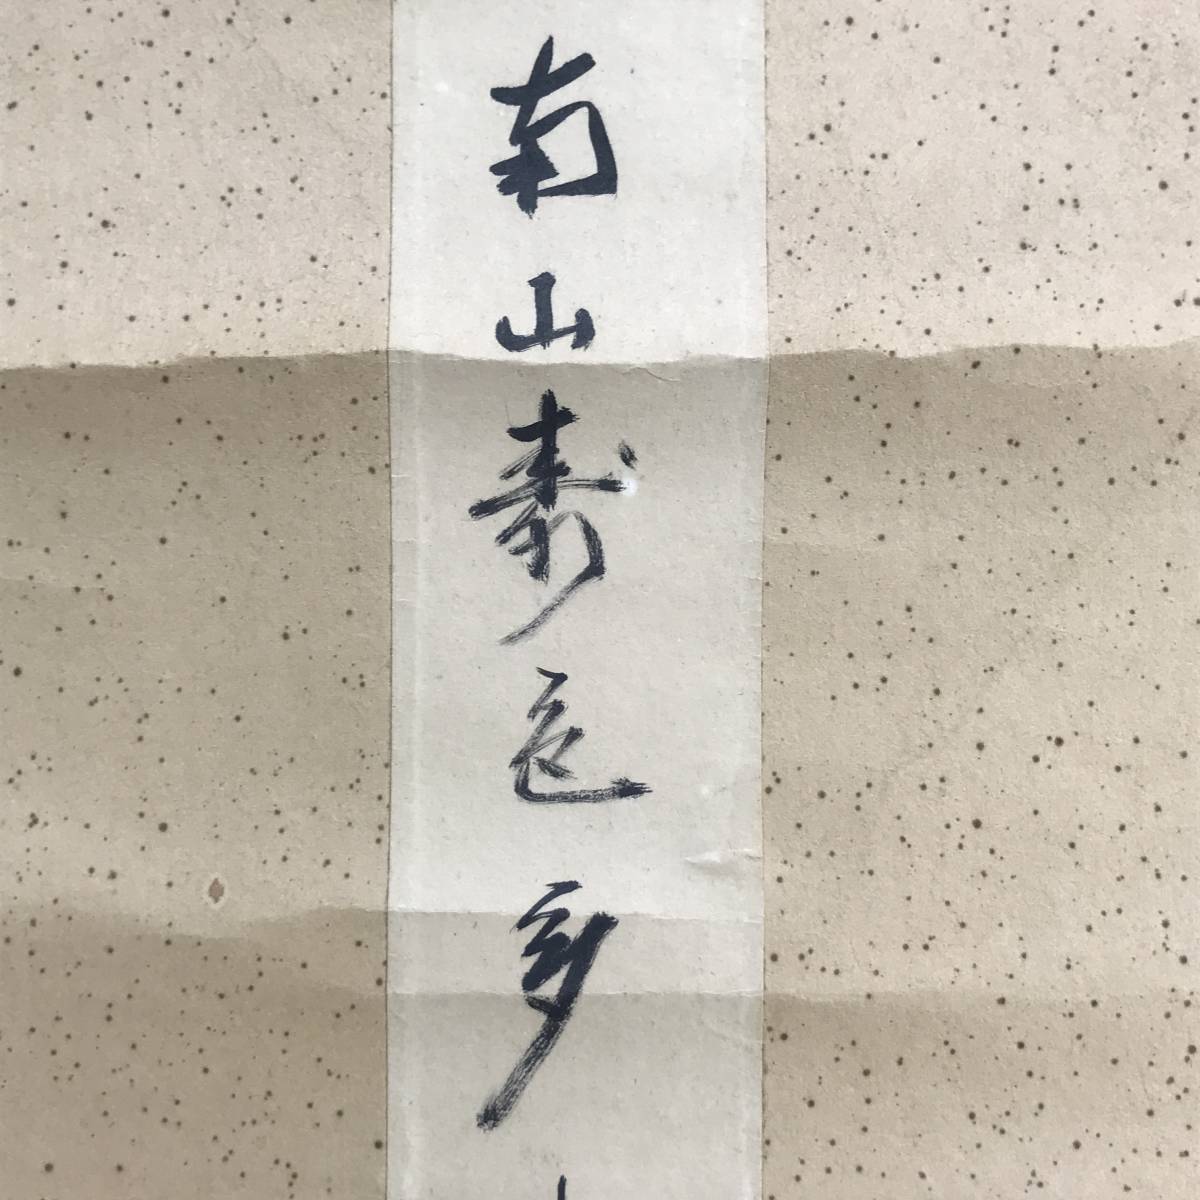 南山寿色多